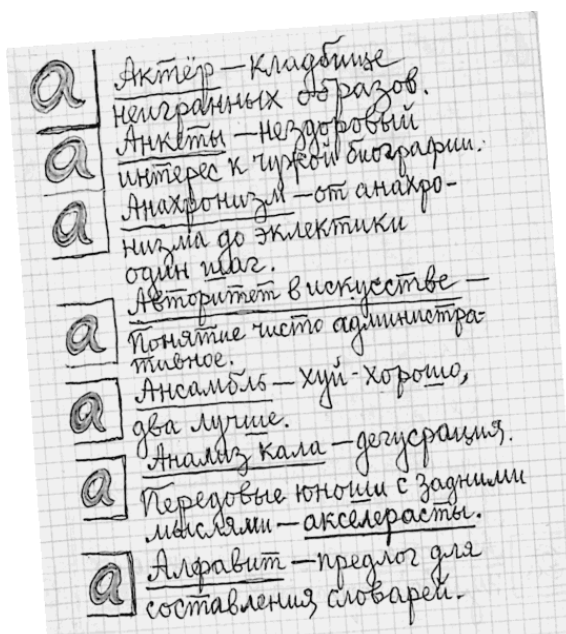 а Актёр — кладбище
неигранных образов.
а Анкеты — нездоровый
интерес к чужой биографии.
а Анахронизм — от анахро-
низма до эклектики
один шаг.
а Авторитет в искусстве —
Понятие чисто администра-
тивное.
а Ансамбль — хуй - хорошо,
два лучше.
а Анализ кала — дегусрация.
Передовые юноши с задними
мыслями — акселерасты.
а Алфавит — предлог для
составления словарей.